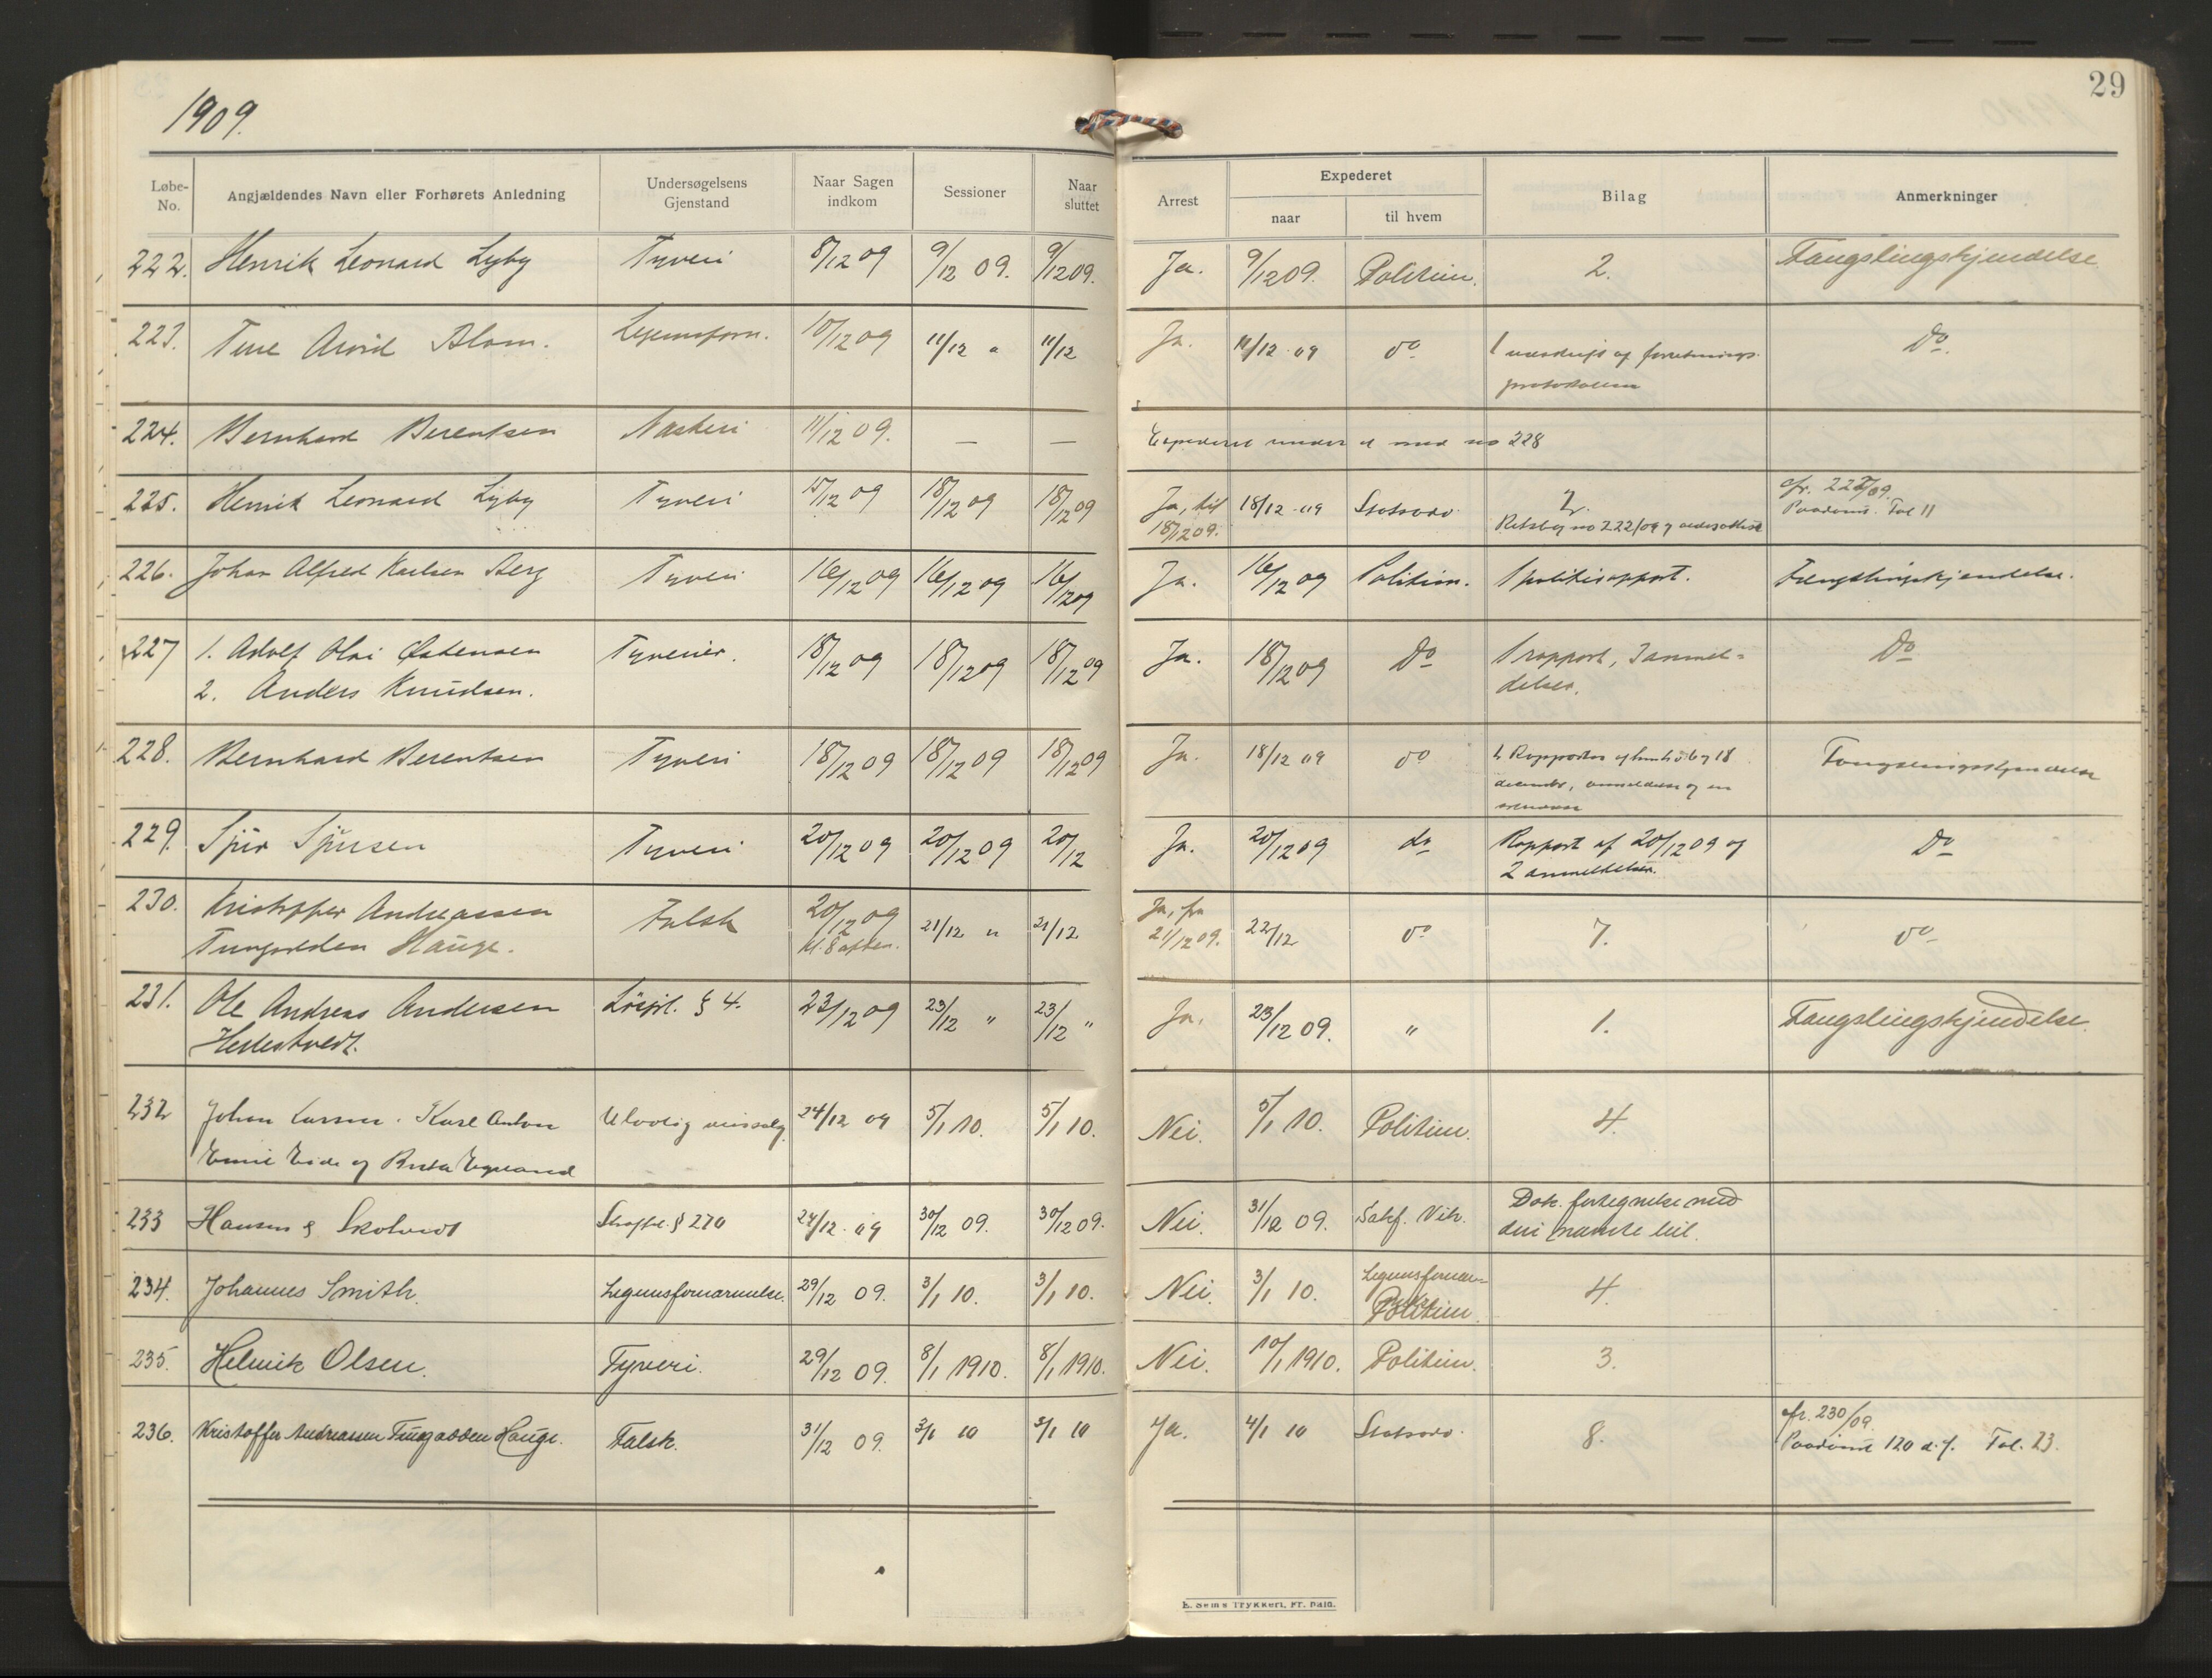 1909.
29
Løbe-No. Angjældendes Navn eller Forhørets Anledning Undersøgelsens Gjenstand Naar Sagen indkom Sessioner Naar sluttet Arrest Expederet naar til hvem Bilag Anmerkninger
222. Henrik Leonard Lyby Tyveri 8/12 09 9/12 09. 9/12 09. Ja. 9/12 09. Politiun. 2. Fangslingskjendelse
223. Ture Arvid Blom. Legemsforn. 10/12 09 11/12 " 11/12 Ja. 11/12 09 do 1 utskrift af forretnings- Do.
protokollen
224. Bernhard Berentsen Naskeri 11/12 09. — — Expederet under et med no 228
225. Henrik Leonard Lyby Tyveri 15/12 09 18/12 09 18/12 09 Ja, til 18/12 09 Statsadv. 2. cfr. 222/09.
18/12 09. Retsbog no 222/09 Paadømt. Tol 11
226. Johan Alfred Karlsen Berg Tyveri 16/12 09 16/12 09 16/12 09 Ja. 16/12 09 Politiun. 1 politirapport. Fængslingskjendelse.
227 1. Adolf Olai Østensen Tyverier. 18/12 09 18/12 09 18/12 09 Ja. 18/12 09 Do 1 rapport, 3 anmel- Do
2. Anders Knudsen. delser.
228. Bernhard Berentsen Tyveri 18/12 09 18/12 09 18/12 09 Ja. 18/12 09 do 2 Rapporter af 18 Fangslingskjendelse
decembr, anmeldelse og en
229. Sjur Sjursen Tyveri 20/12 09 20/12 09 20/12 Ja. 20/12 09 do Rapport af 20/12 09 og Do
2 anmeldelser.
230. Kristoffer Andreassen Falsk 20/12 09 21/12 " 21/12 Ja, fra 22/12 do 7. do
Tungodden Hauge. kl. 8 aften. 21/12 09.
231. Ole Andreas Andersen Løsgl. § 4. 23/12 09 23/12 " 23/12 " Ja. 23/12 09. " 1. Fangslingskjendelse.
Hellestvedt.
232 Johan Larsen. Karl Anton Ulovlig vinsalg 24/12 09 5/1 10. 5/1 10. Nei. 5/1 10. Politiun. 4.
Emil Eide og Berta Egeland
233 Hansen & Skotvedt Straffel. § 270 24/12 09 30/12 09. 30/12 09. Nei. 31/12 09. Sakf. Vik. Dok. fortegnelse med
dei nævnte bil.
234. Johannes Smith. Legemsfornærmelse. 29/12 09. 3/1 10. 3/1 10. Nei. 3/1 10. Politiun. 4.
235. Helmik Olsen. Tyveri. 29/12 09. 8/1 1910. 8/1 1910. Nei. 10/1 1910. Politiun. 3.
236. Kristoffer Andreassen Tungodden Hauge. Falsk. 31/12 09. 3/1 10 3/1 10 Ja. 4/1 10 Statsadv. 8. cfr. 230/09
Paadømt 120 d. f. Tol. 23.
E. Sems Trykkeri, Fr. hald.